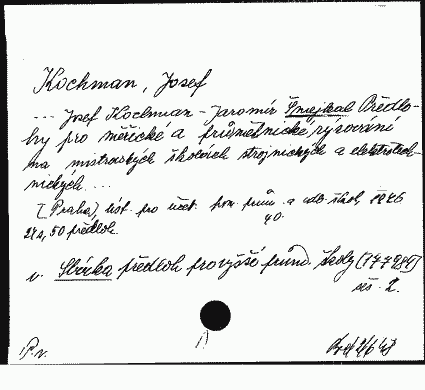 Kochman, Josef
... Josef Kochman - Jaromír Šmejkal Předlo-
hy pro měřické a průmětnické rýsování
na mistrovských školách strojnických a elektrotech-
nických ...
[Praha], úst. pro učeb. pom. prům. a odb. škol,
40.
24 s, 50 předloh
v. Sbírka předloh pro vyšší prům. školy
Př.